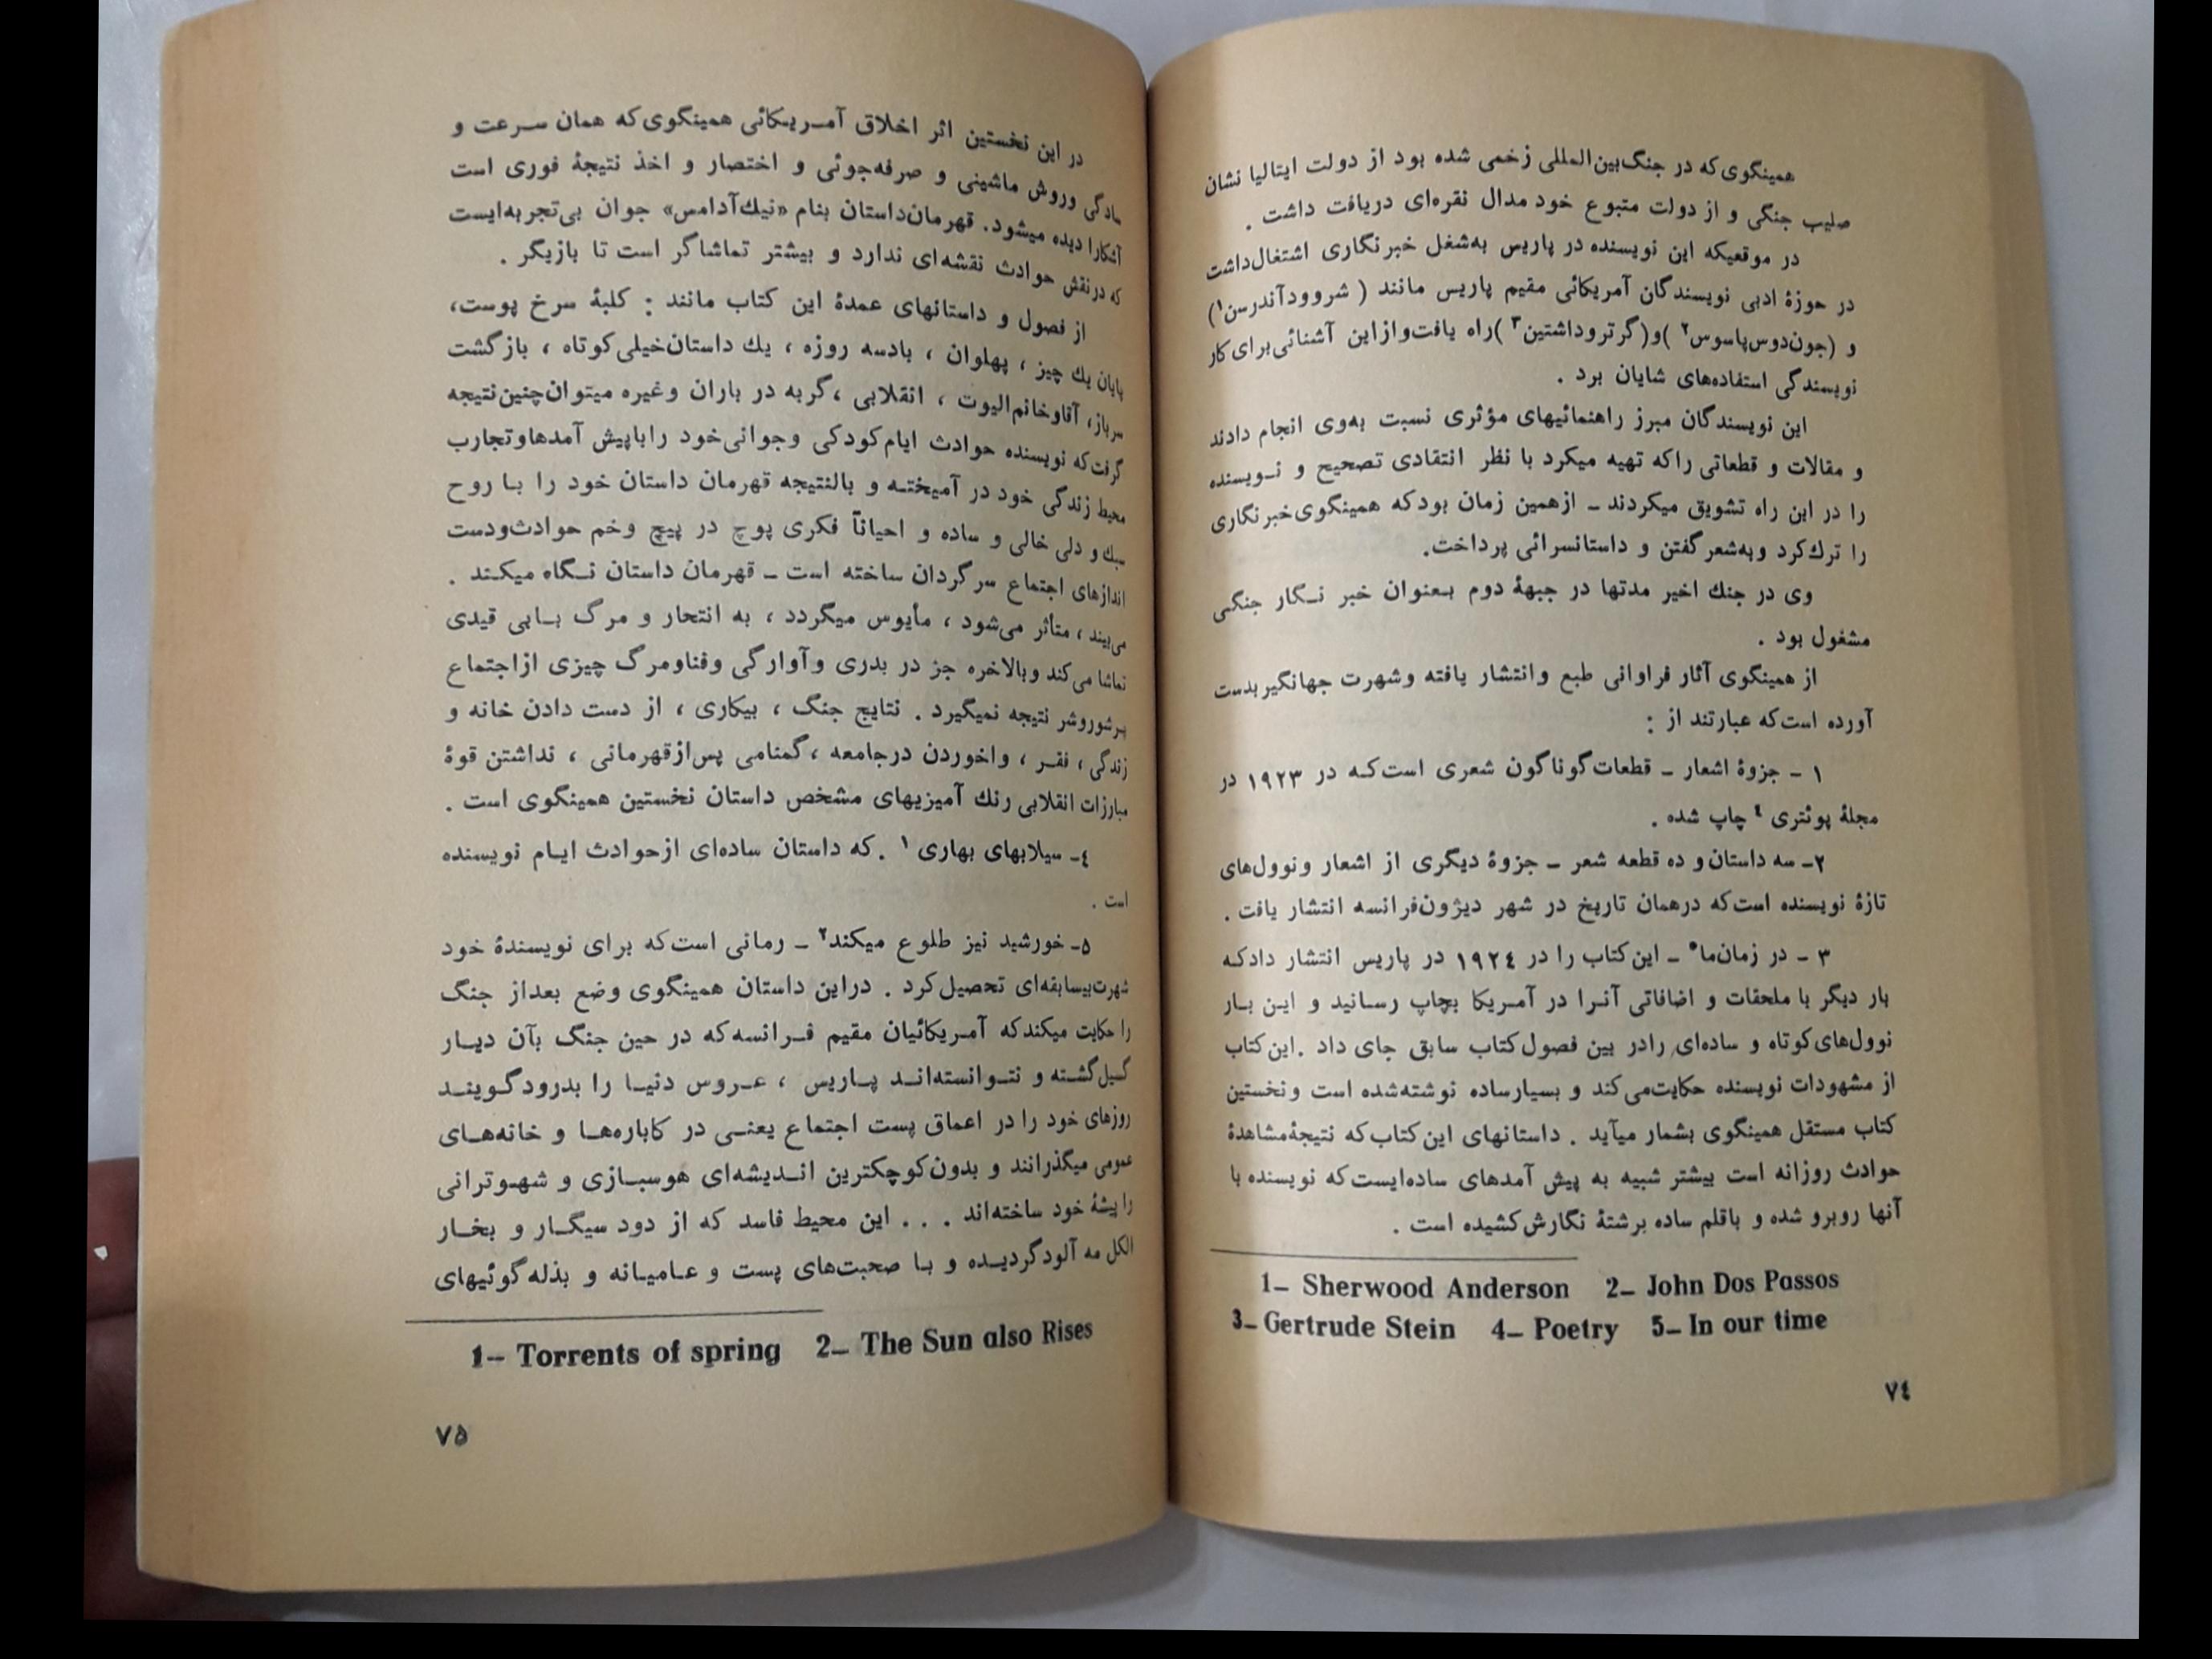 همینگوی‌که در جنگ‌بین‌المللی زخمی شده بود از دولت ایتالیا نشان
صلیب جنگی و از دولت متبوع خود مدال نقره‌ای دریافت داشت .
در موقعیکه این نویسنده در پاریس به‌شغل خبرنگاری اشتغال‌داشت
در حوزهٔ ادبی نویسندگان آمریکائی مقیم پاریس مانند ( شروودآندرسن۱)
و (جون‌دوس‌پاسوس۲ )و(گرتروداشتین۳ )راه یافت‌وازاین آشنائی‌برای‌کار
نویسندگی استفاده‌های شایان برد .
این نویسندگان مبرز راهنمائیهای مؤثری نسبت به‌وی انجام دادند
و مقالات و قطعاتی راکه تهیه میکرد با نظر انتقادی تصحیح و نـویسنده
را در این راه تشویق میکردند ـ ازهمین زمان بودکه همینگوی‌خبرنگاری
را ترك‌کرد وبه‌شعرگفتن و داستانسرائی پرداخت.
وی در جنك اخیر مدتها در جبههٔ دوم بـعنوان خبر نـگار جنگی
مشغول بود .
از همینگوی آثار فراوانی طبع وانتشار یافته وشهرت جهانگیربدست
آورده است‌که عبارتند از :
۱ ـ جزوهٔ اشعار ـ قطعات‌گوناگون شعری است‌کـه در ۱۹۲۳ در
مجلهٔ پوئتری ٤ چاپ شده .
۲ـ سه داستان‌و ده قطعه شعر ـ جزوهٔ دیگری از اشعار ونوول‌های
تازهٔ نویسنده است‌که درهمان تاریخ در شهر دیژون‌فرانسه انتشار یافت .
۳ ـ در زمان‌ما۵ ـ این‌کتاب را در ۱۹۲٤ در پاریس انتشار دادکـه
بار دیگر با ملحقات و اضافاتی آنـرا در آمـریکا بچاپ رسـانید و ایـن بـار
نوول‌های‌کوتاه و ساده‌ای رادر بین فصول‌کتاب سابق جای داد .این‌کتاب
از مشهودات نویسنده حکایت‌می‌کند و بسیارساده نوشته‌شده است ونخستین
کتاب مستقل همینگوی بشمار میآید . داستانهای این‌کتاب‌که نتیجهٔ‌مشاهدهٔ
حوادث روزانه است بیشتر شبیه به پیش آمدهای ساده‌ایست‌که نویسنده با
آنها روبرو شده و باقلم ساده برشتهٔ نگارش‌کشیده است .
1_ Sherwood Anderson 2_ John Dos Passos
3_ Gertrude Stein 4_ Poetry 5_ In our time
۷٤
در این نخستین اثر اخلاق آمـریـکائی همینگوی‌که همان سـرعت و
سادگی وروش ماشینی و صرفه‌جوئی و اختصار و اخذ نتیجهٔ فوری است
آشکارا دیده میشود. قهرمان‌داستان بنام «نیك‌آدامس» جوان بی‌تجربه‌ایست
که درنقش حوادث نقشه‌ای ندارد و بیشتر تماشاگر است تا بازیگر .
از فصول و داستانهای عمدهٔ این کتاب مانند : کلبهٔ سرخ پوست،
پایان یك چیز ، پهلوان ، بادسه روزه ، یك داستان‌خیلی‌کوتاه ، بازگشت
سرباز، آقاوخانم‌الیوت ، انقلابی ،گربه در باران وغیره میتوان‌چنین‌نتیجه
گرفت‌که نویسنده حوادث ایام‌کودکی وجوانی‌خود راباپیش آمدهاوتجارب
محیط زندگی خود در آمیختـه و بالنتیجه قهرمان داستان خود را بـا روح
سبك و دلی خالی و ساده و احیاناً فکری پوچ در پیچ وخم حوادث‌ودست
اندازهای اجتماع سرگردان ساخته است ـ قهرمان داستان نـگاه میکـند .
می‌بیند ، متأثر می‌شود ، مأیوس میگردد ، به انتحار و مرگ بـابی قیدی
تماشا می‌کند وبالاخره جز در بدری وآوارگی وفناومرگ چیزی ازاجتماع
پرشوروشر نتیجه نمیگیرد . نتایج جنگ ، بیکاری ، از دست دادن خانه و
زندگی ، فقـر ، واخوردن درجامعه ،گمنامی پس‌ازقهرمانی ، نداشتن قوهٔ
مبارزات انقلابی رنك آمیزیهای مشخص داستان نخستین همینگوی است .
٤ـ سیلابهای بهاری ۱ .که داستان ساده‌ای ازحوادث ایـام نویسنده
است .
۵ـ خورشید نیز طلوع میکند۲ ـ رمانی است‌که برای نویسندهٔ خود
شهرت‌بیسابقه‌ای تحصیل‌کرد . دراین داستان همینگوی وضع بعداز جنگ
را حکایت میکندکه آمـریکائیان مقیم فـرانسه‌که در حین جنگ بآن دیـار
گسیل‌گشـته و نتـوانسته‌انـد پـاریس ، عـروس دنیـا را بدرودگـوینـد
روزهای خود را در اعماق پست اجتماع یعنـی در کاباره‌هـا و خانه‌هـای
عمومی میگذرانند و بدون‌کوچکترین انـدیشه‌ای هوسبـازی و شهـوترانی
را پیشهٔ خود ساخته‌اند . . . این محیط فاسد که از دود سیگـار و بخـار
الکل مه آلودگردیـده و بـا صحبت‌های پست و عـامیـانه و بذله‌گوئیهای
1_ Torrents of spring 2_ The Sun also Rises
۷۵